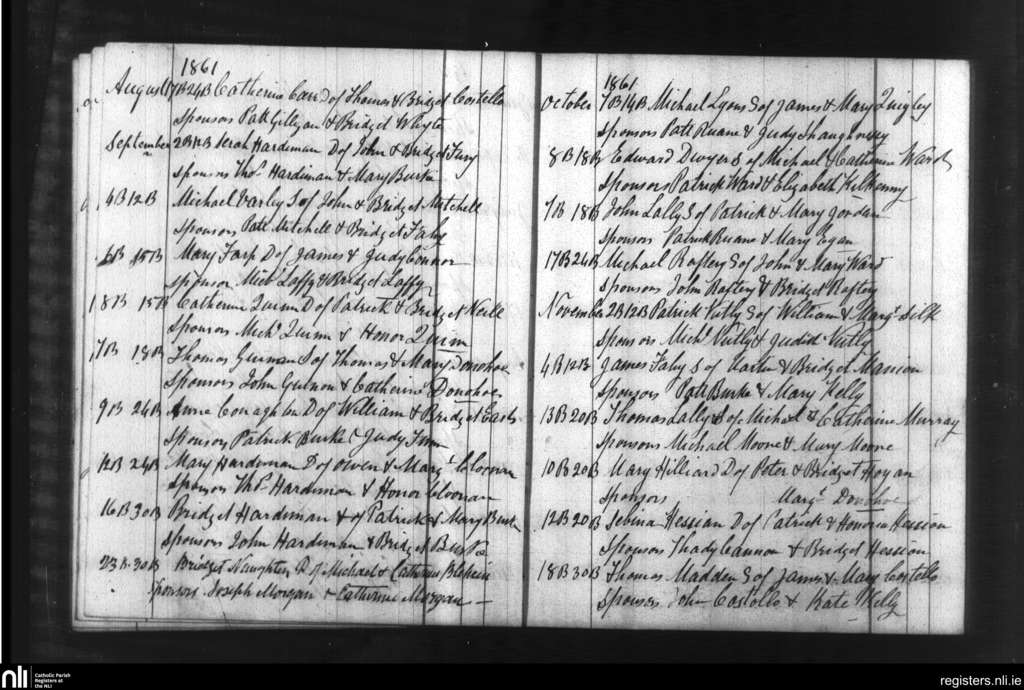 1861
August 17B 24B Catherine Carr D of Thomas & Bridget Costello
Sponsors Patt Gilligan & Bridget Whyte
September 2B 12B Serah Hardiman D of John & Bridget Fury
sponsors Thos Hardiman & Mary Burke
4B 12B Michael Varley S of John & Bridget Mitchell
sponsors Patt Mitchell & Bridget Fahy
15B Mary D of James & Judy Connor
sponsor Mich Laffy & Bridget Laffy
18B 15B Catherine Quinn D of Patrick & Bridget Neill
Sponsors Michl Quinn & Honor Quinn
7B 18B Thomas S of Thomas & Mary Donohoe
Sponsors John & Catherine Donohoe
9B 24B Anne D of William & Bridget
Sponsors Patrick Burke & Judy
12B 24B Mary Hardiman D of Owen & Margt Cloonan
Sponsors Thos Hardiman & Honor Cloonan
16B 30B Bridget Hardiman & of Patrick & Mary Burke
sponsors John Hardiman & Bridget Burke
23B 30B Bridget Naughten D of Michael & Catherine
Sponsors Joseph Morgan & Catherine Morgan
1861
October 7B 14B Michael Lyons S of James & Mary Quigley
sponsors Patt Ruane & Judy Shaughnessy
8B 18B Edward Dwyer S of Michael & Catherine Ward
Sponsors Patrick Ward & Elizabeth Kilkenny
7B 18B John Lally S of Patrick & Mary Jordan
Sponsors Patrick Ruane & Mary Egan
17B 24B Michael Raftery S of John & Mary Ward
Sponsors John Raftery & Bridget Raftery
November 2B 12B Patrick S of William & Margt Silk
Sponsors Michl & Judith
4B 12B James Fahy S of Martin & Bridget Mannion
Sponsors Patt Burke & Mary Kelly
13B 20B Thomas Lally S of Michael & Catherine Murray
Sponsors Michael Moone & Mary Moone
10B 20B Mary Hilliard D of Peter & Bridget Hogan
Sponsors Margt Donohoe
12B 20B Sebina Hession D of Patrick & Honoria Hession
Sponsors Thady Cannon & Bridget Hession
18B 30B Thomas Madden S of James & Mary Costello
Sponsors John Costollo & Kate Kelly
nli Catholic Parish
Registers at
the NLI
registers.nli.ie